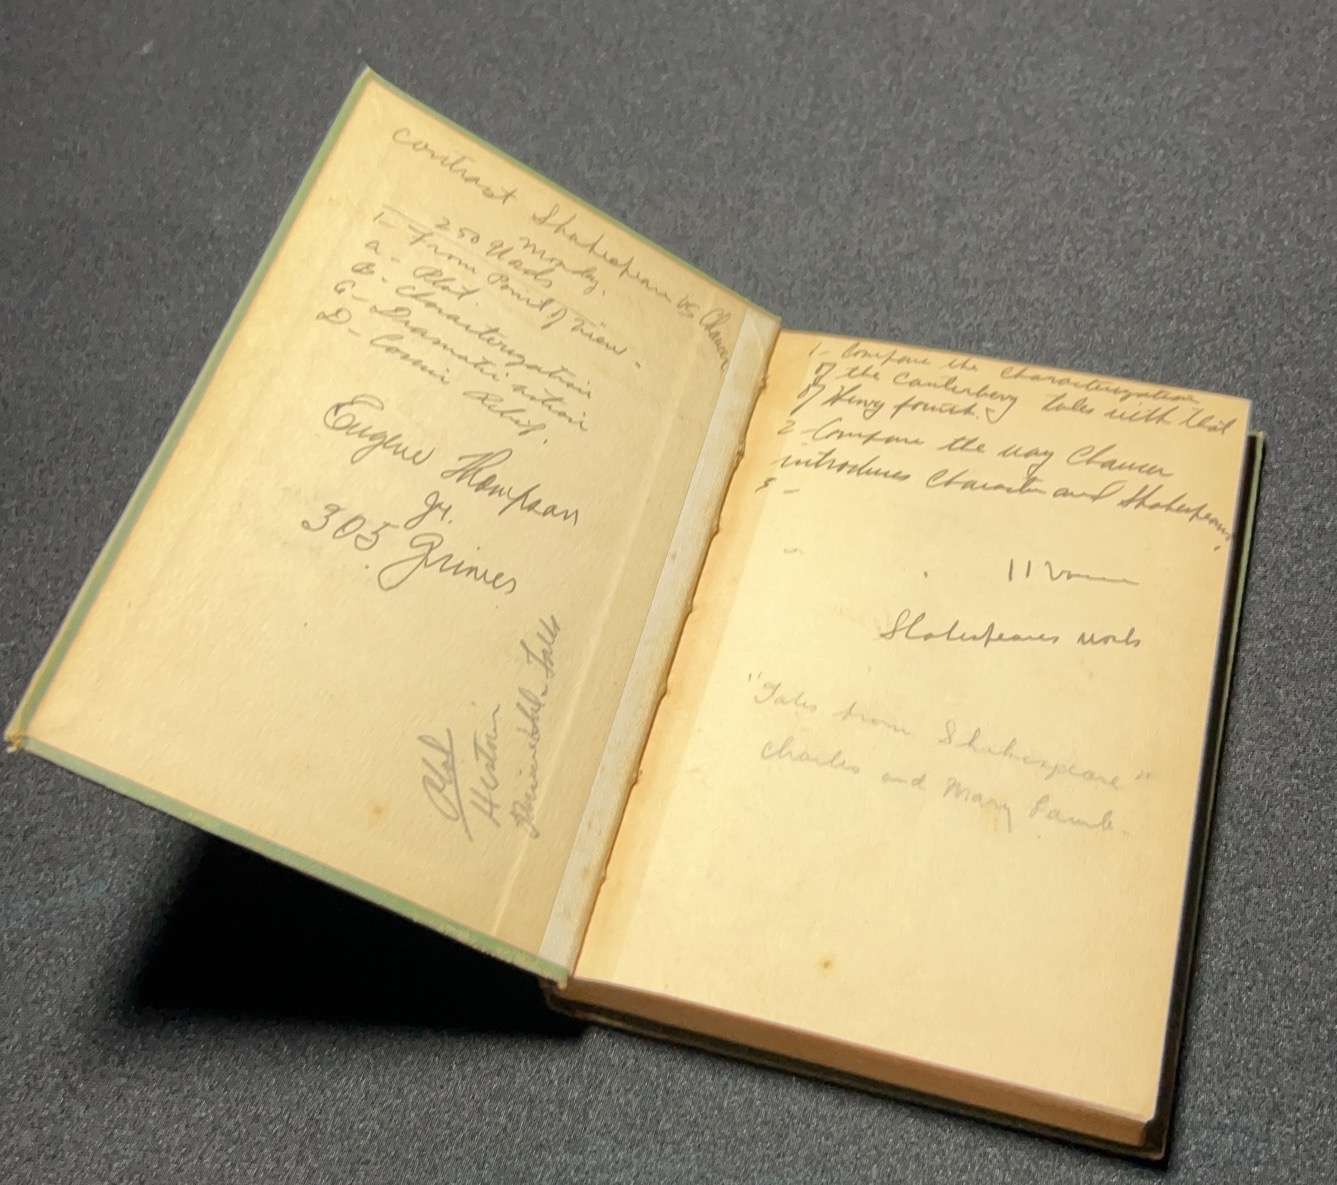 Contrast Shakespeare vs Chaucer
Monday.
250 Words
1- From Point of View.
a- Plot.
B- Characterization
C- Dramatic action
D- Comic Relief.
Eugene Thompson
Jr.
305 Grimes
Tales
1- Compare the Characterization
of the Canterbery tales with that
of Henry fourth.
2 - Compare the way Chaucer
introduces Character and Shakespeare.
3 -
Shakespeares works
"Tales from Shakespeare"
Charles and Mary Lamb.